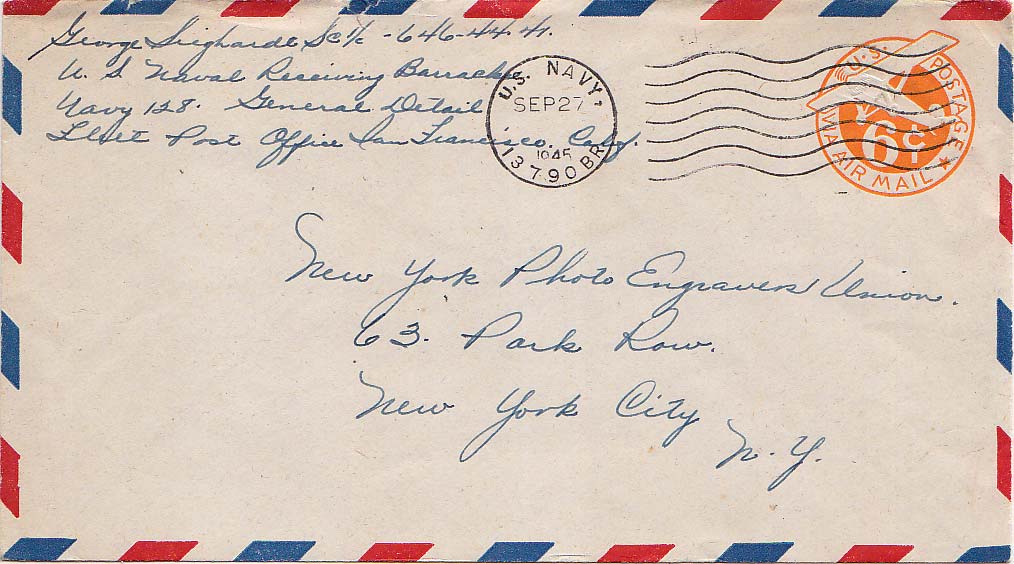 George Sieghardt S 1/c - 646-44-41.
U. S. Naval Receiving Barracks
Navy 128. General Detail
Fleet Post Office San Francisco. Calif.
U.S. NAVY
SEP 27
1945
13790 BR.
U.S. POSTAGE
6¢
VIA AIR MAIL
New York Photo Engravers Union.
63. Park Row.
New York City
N. Y.